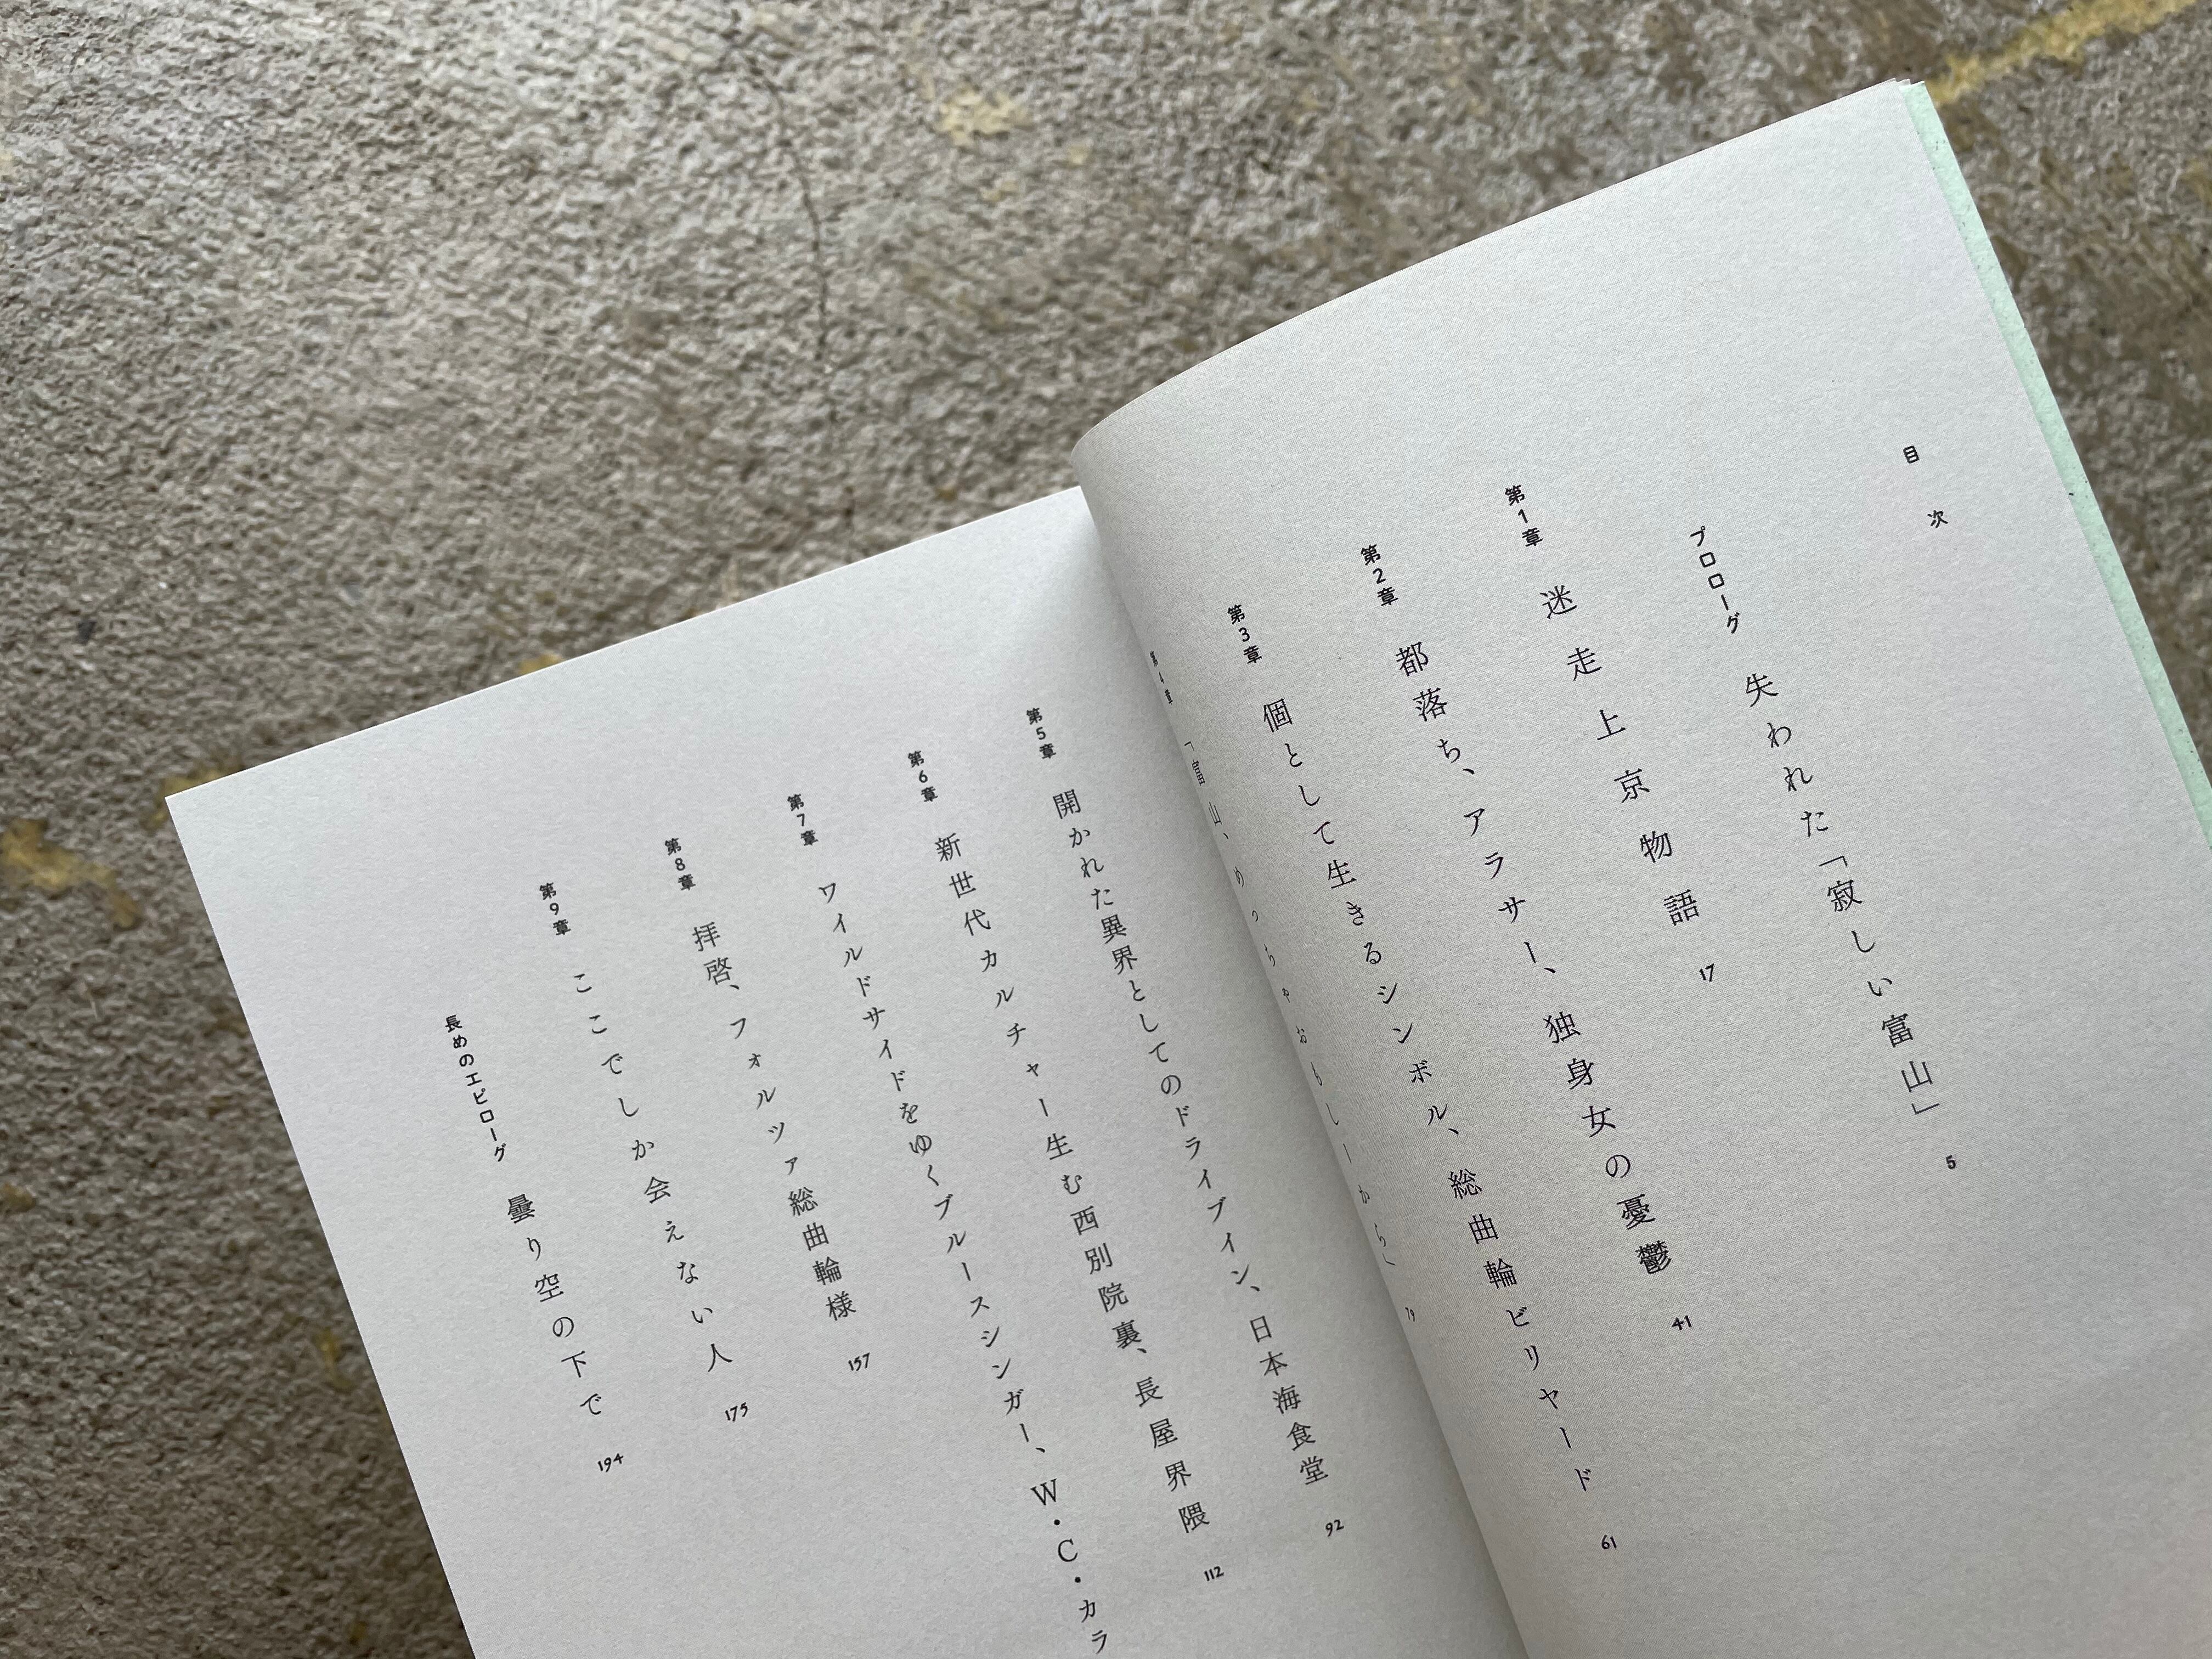 目次
プロローグ 失われた「寂しい富山」 5
第1章 迷走上京物語 17
第2章 都落ち、アラサー、独身女の憂鬱 41
第3章 個として生きるシンボル、総曲輪ビリヤード 61
第4章 「富山、めっちゃおもしーから」 79
第5章 開かれた異界としてのドライブイン、日本海食堂 92
第6章 新世代カルチャー生む西別院裏、長屋界隈 112
第7章 ワイルドサイドをゆくブルースシンガー、W・C・カラ
第8章 拝啓、フォルツァ総曲輪様 157
第9章 ここでしか会えない人 175
長めのエピローグ 曇り空の下で 194